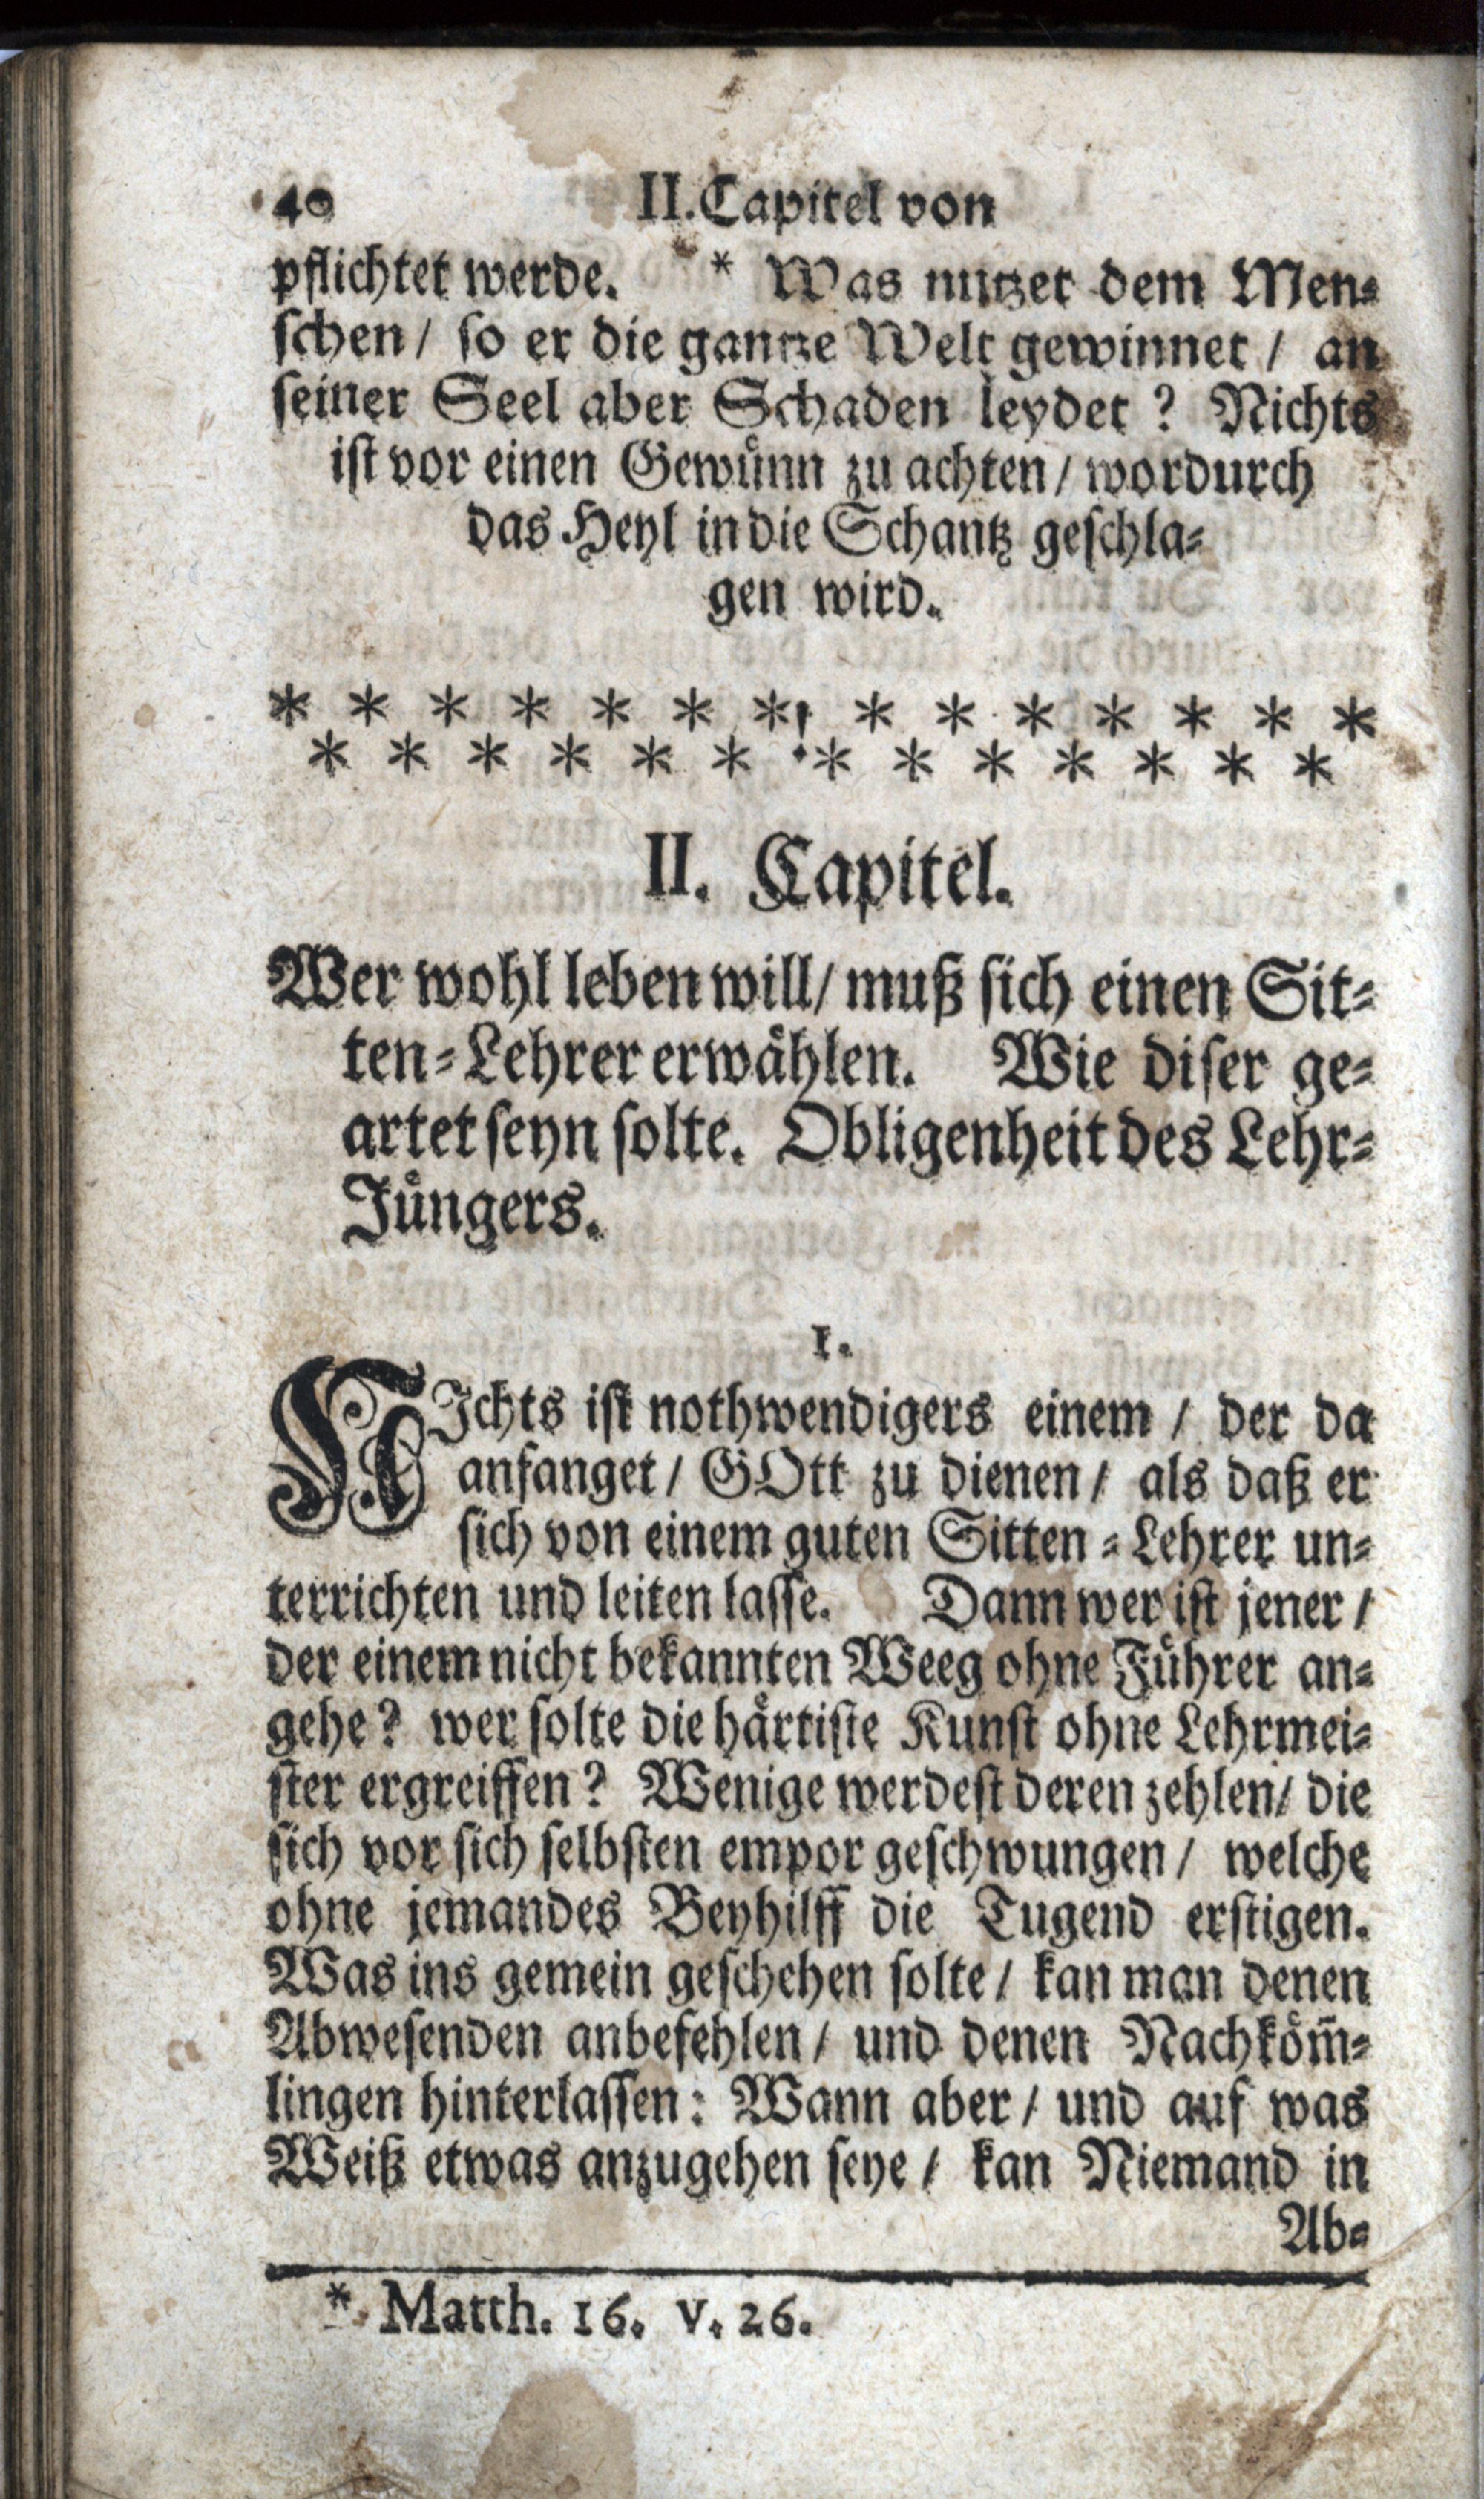 40 II. Capitel von
pflichtet werde. * Was nutzet dem Men⸗
ſchen / ſo er die gantze Welt gewinnet / an
ſeiner Seel aber Schaden leydet? Nichts
iſt vor einen Gewuͤnn zu achten / wordurch
das Heyl in die Schantz geſchla⸗
gen wird.
* * * * * * *! * * * * * * *
* * * * * * :* * * * * * *
II. Capitel.
Wer wohl leben will / muß ſich einen Sit⸗
ten⸗Lehrer erwaͤhlen. Wie diſer ge⸗
artet ſeyn ſolte. Obligenheit des Lehr⸗
Juͤngers.
1.
NIchts iſt nothwendigers einem / der da
anfanget / GOtt zu dienen / als daß er
ſich von einem guten Sitten⸗Lehrer un⸗
terrichten und leiten laſſe. Dann wer iſt jener /
der einem nicht bekannten Weeg ohne Fuͤhrer an⸗
gehe? wer ſolte die haͤrtiſte Kunſt ohne Lehrmei⸗
ſter ergreiffen? Wenige werdeſt deren zehlen / die
ſich vor ſich ſelbſten empor geſchwungen / welche
ohne jemandes Beyhilff die Tugend erſtigen.
Was ins gemein geſchehen ſolte / kan man denen
Abweſenden anbefehlen / und denen Nachkoͤm̃⸗
lingen hinterlaſſen: Wann aber / und auf was
Weiß etwas anzugehen ſeye / kan Niemand in
Ab⸗
* Matth. 16. v. 26.